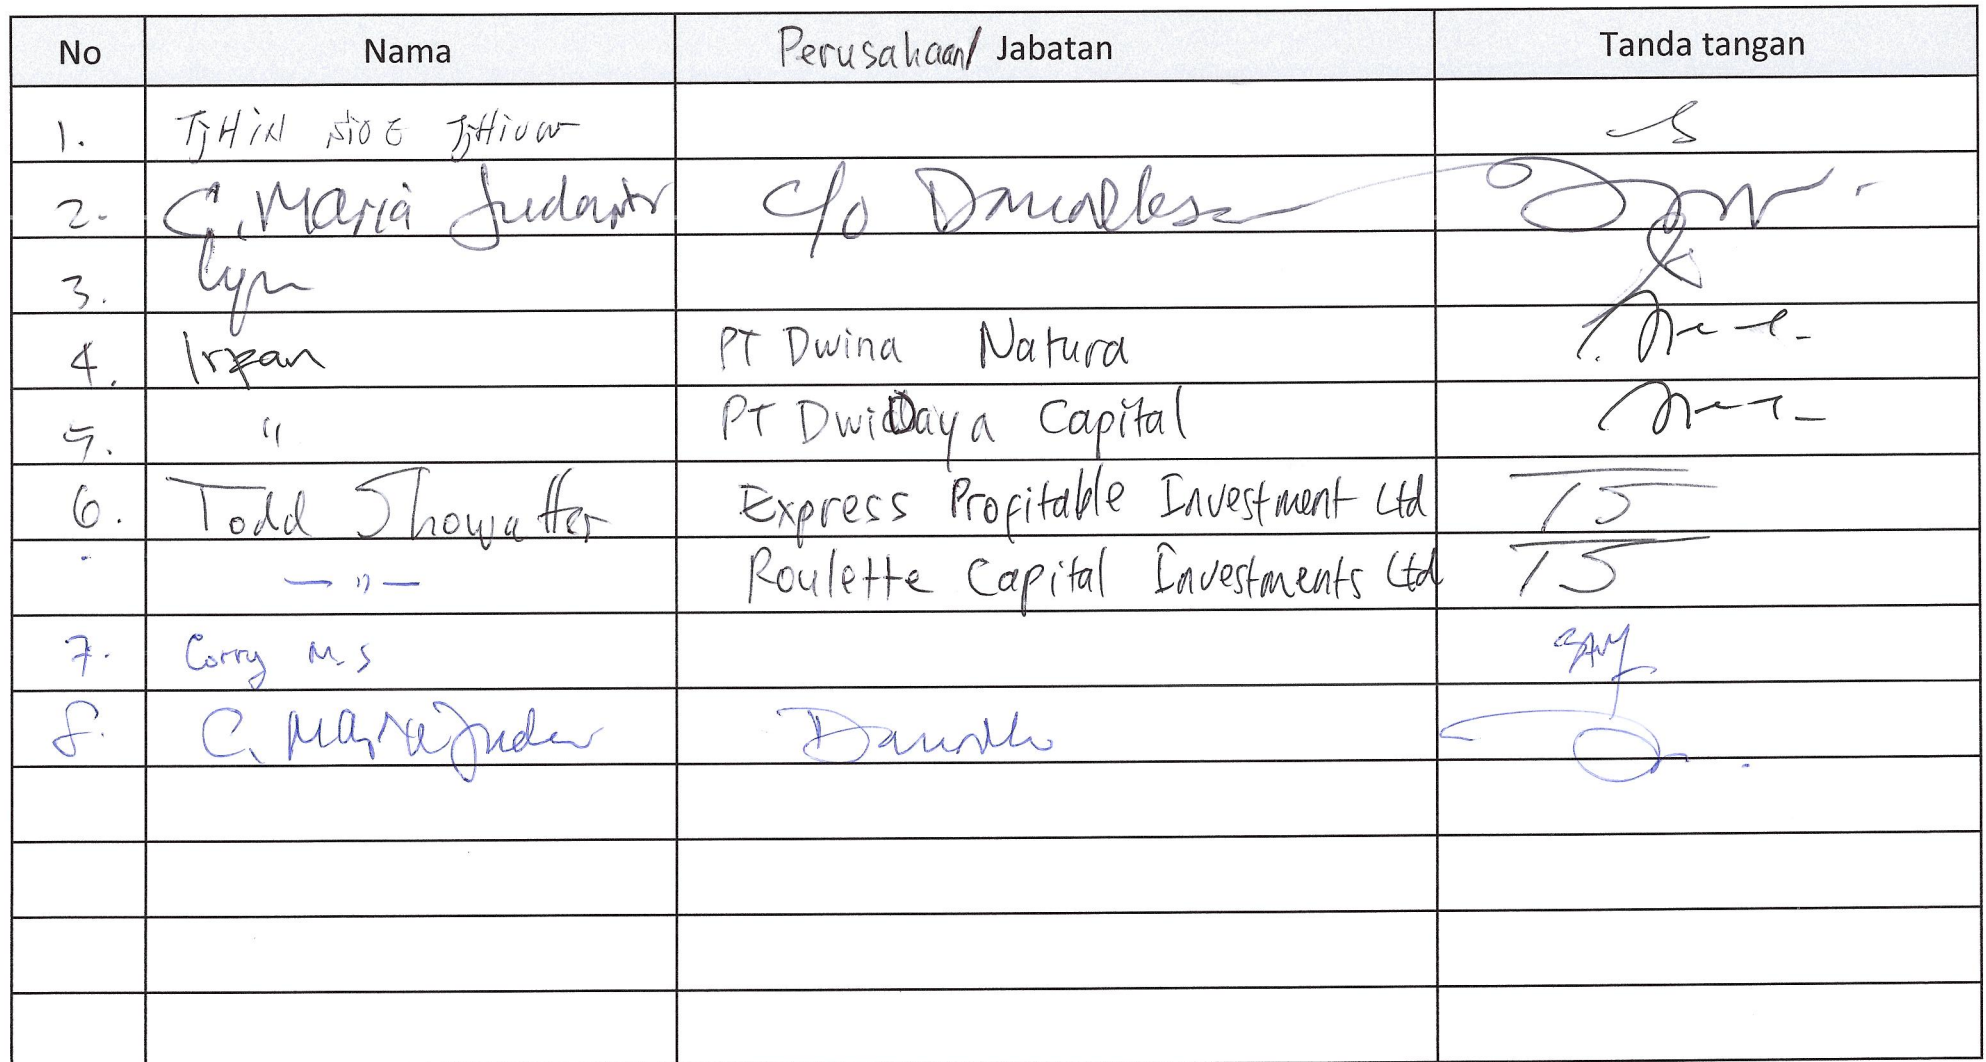 No Nama Perusahaan/ Jabatan Tanda tangan
1. TJHIN NIOE TJHIUW
2. C. Maria c/o
3. Lyn
4. Irfan PT Dwina Natura
5. " PT DwiDaya Capital
6. Todd Showalter Express Profitable Investment Ltd TS
— " — Roulette Capital Investments Ltd TS
7. Corry M.S
8. C. Maria